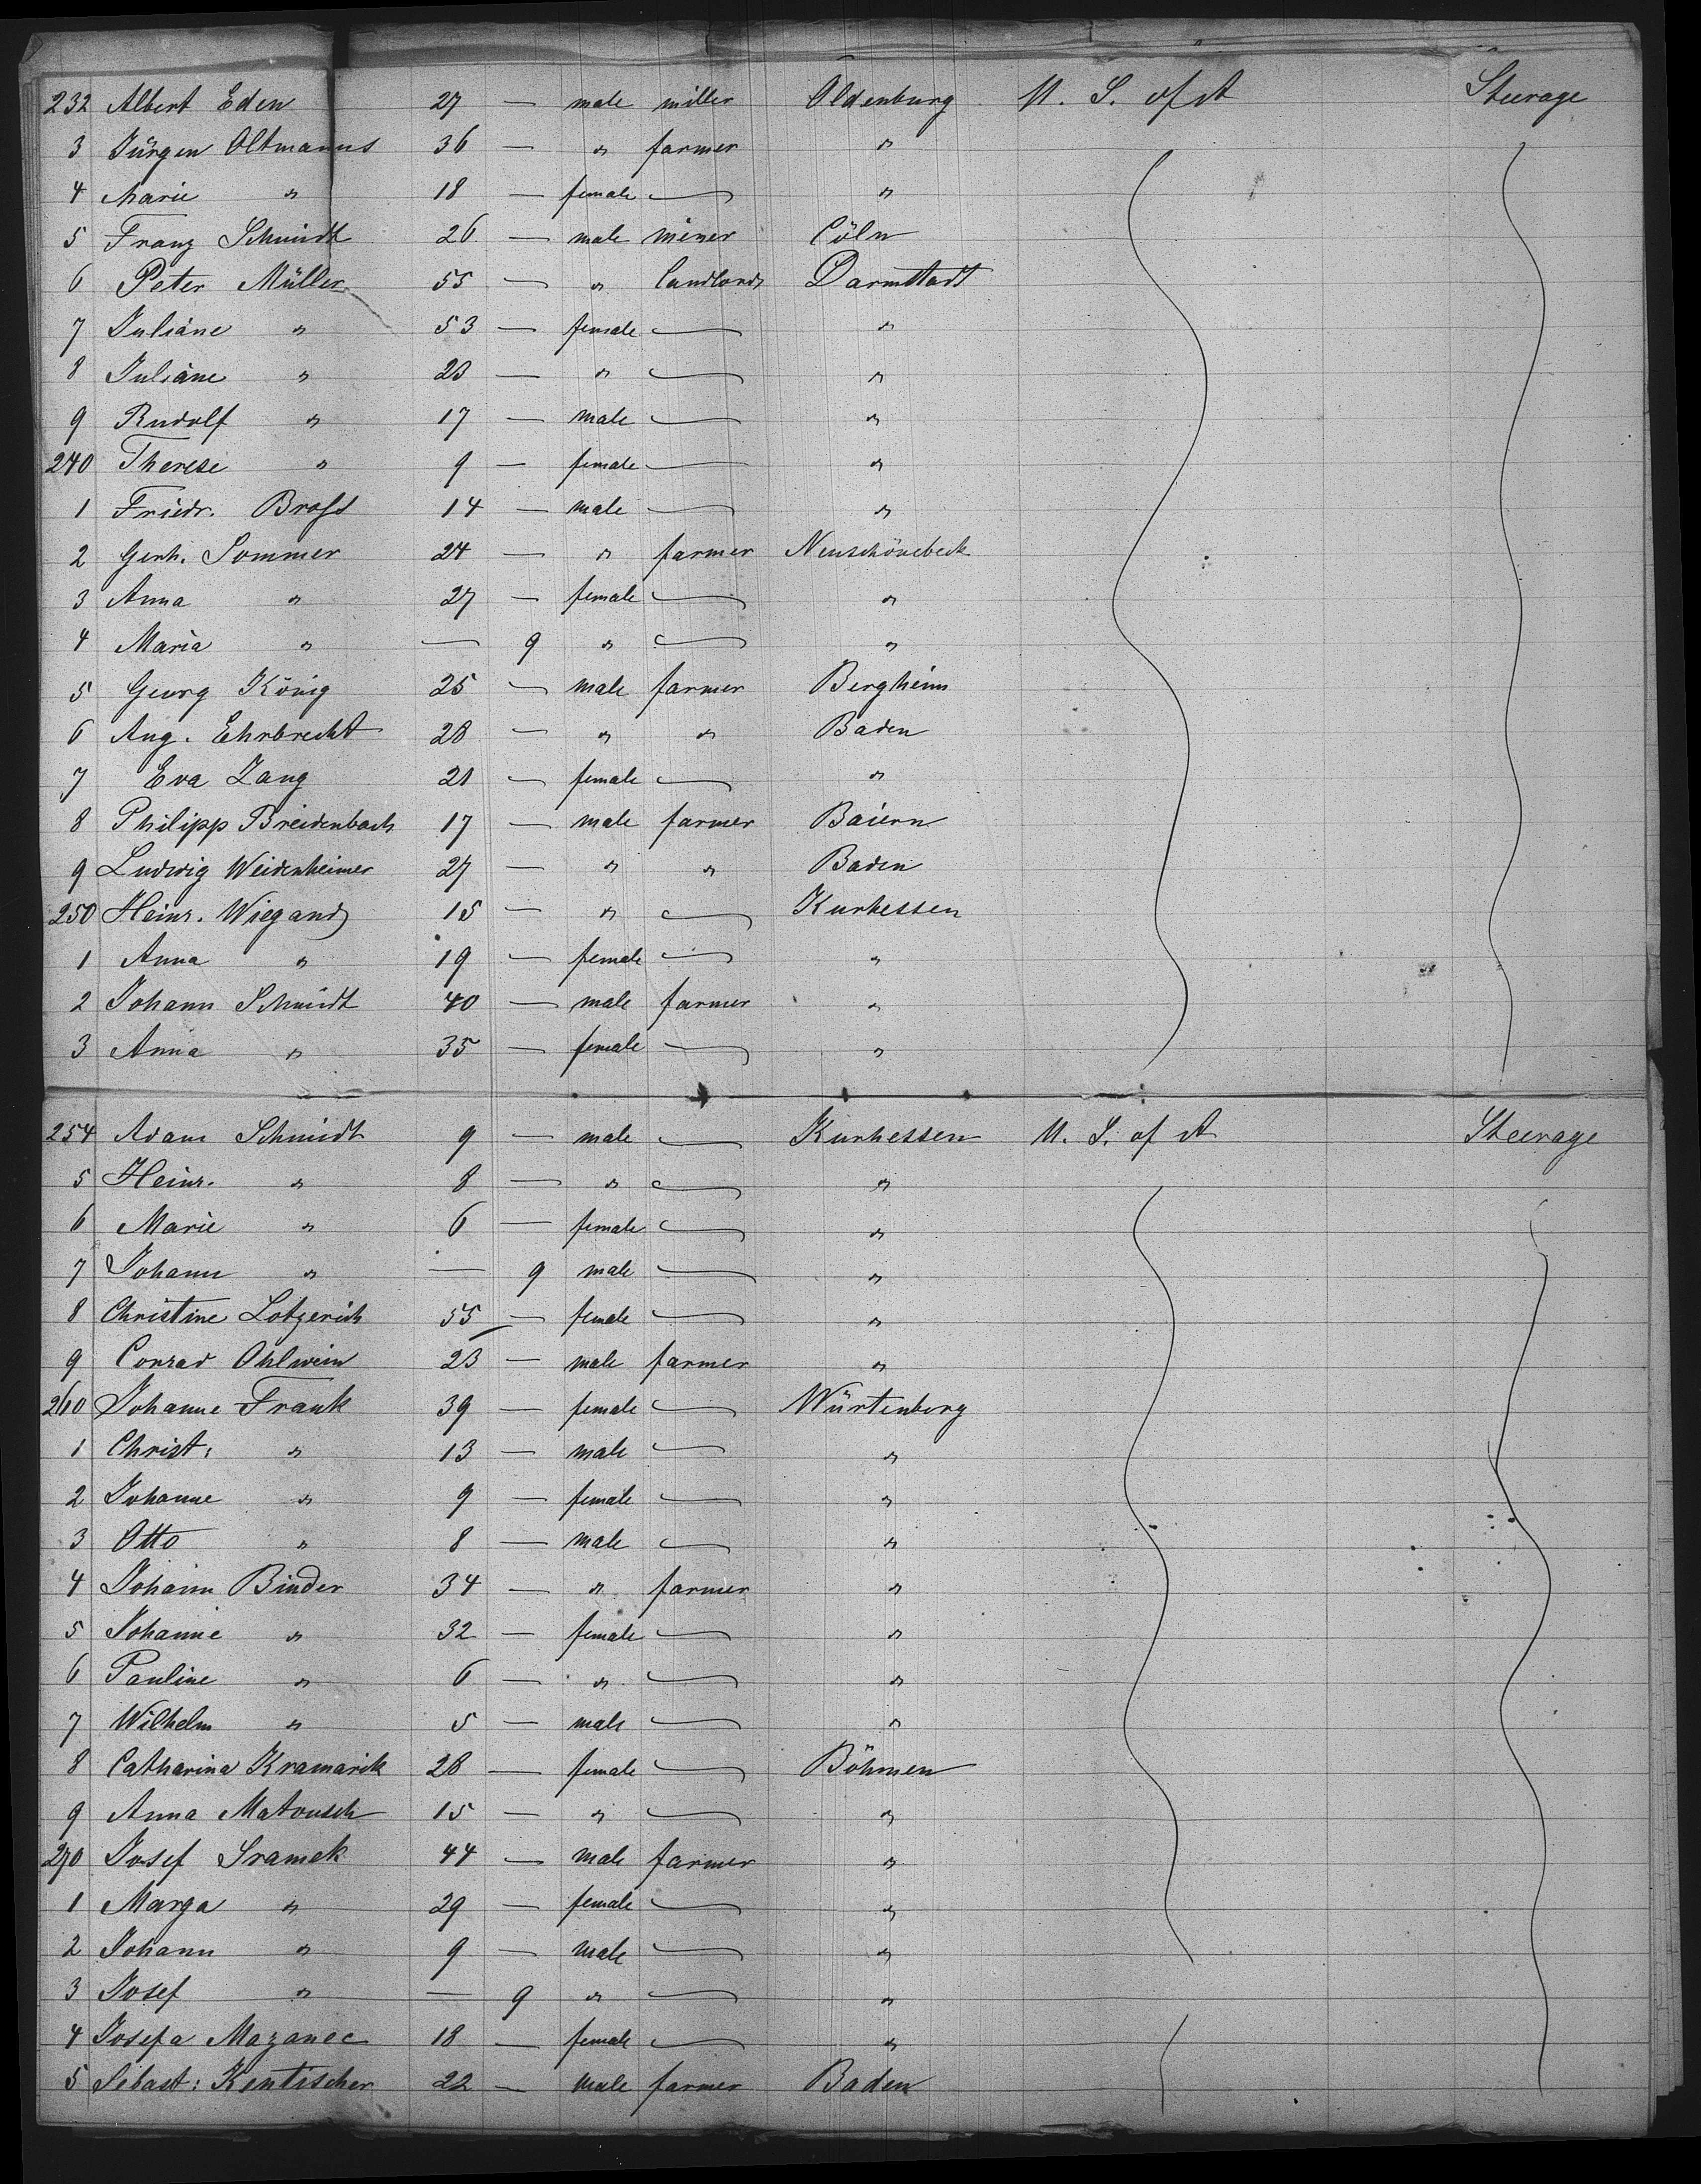 232 Albert Eden 27 — male miller Oldenburg U. S. of A Steerage
3 Jürgen Oltmanns 36 — " farmer "
4 Marie " 18 — female — "
5 Franz Schmidt 26 — male miner Cöln
6 Peter Müller 55 — " landlord Darmstadt
7 Juliane " 53 — female — "
8 Juliane " 23 — " — "
9 Rudolf " 17 — male — "
240 Therese " 9 — female — "
1 Friedr. Bross 14 — male — "
2 Gerh. Sommer 24 — " farmer Neuschönebeck
3 Anna " 27 — female — "
4 Maria " — 9 " — "
5 Georg König 25 — male farmer Bergheim
6 Aug. Ehrbrecht 28 — " " Baden
7 Eva Zang 21 — female — "
8 Philipp Breidenbach 17 — male farmer Baiern
9 Ludwig Weidenheimer 27 — " " Baden
250 Heinr. Wiegand 15 — " — Kurhessen
1 Anna " 19 — female — "
2 Johann Schmidt 40 — male farmer "
3 Anna " 35 — female — "
254 Adam Schmidt 9 — male — Kurhessen U. S. of A Steerage
5 Heinr. " 8 — " — "
6 Marie " 6 — female — "
7 Johann " — 9 male — "
8 Christine Lotzerich 55 — female — "
9 Conrad Ohlwein 23 — male farmer "
260 Johanne Frank 39 — female — Würtenberg
1 Christ: " 13 — male — "
2 Johanne " 9 — female — "
3 Otto " 8 — male — "
4 Johann Binder 34 — " farmer "
5 Johanne " 32 — female — "
6 Pauline " 6 — " — "
7 Wilhelm " 5 — male — "
8 Catharina Kramarik 28 — female — Böhmen
9 Anna Matousch 15 — " — "
270 Josef Sramek 44 — male farmer "
1 Marga " 29 — female — "
2 Johann " 9 — male — "
3 Josef " — 9 " — "
4 Josefa Mazanec 18 — female — "
5 Sebast: Kentischer 22 — male farmer Baden